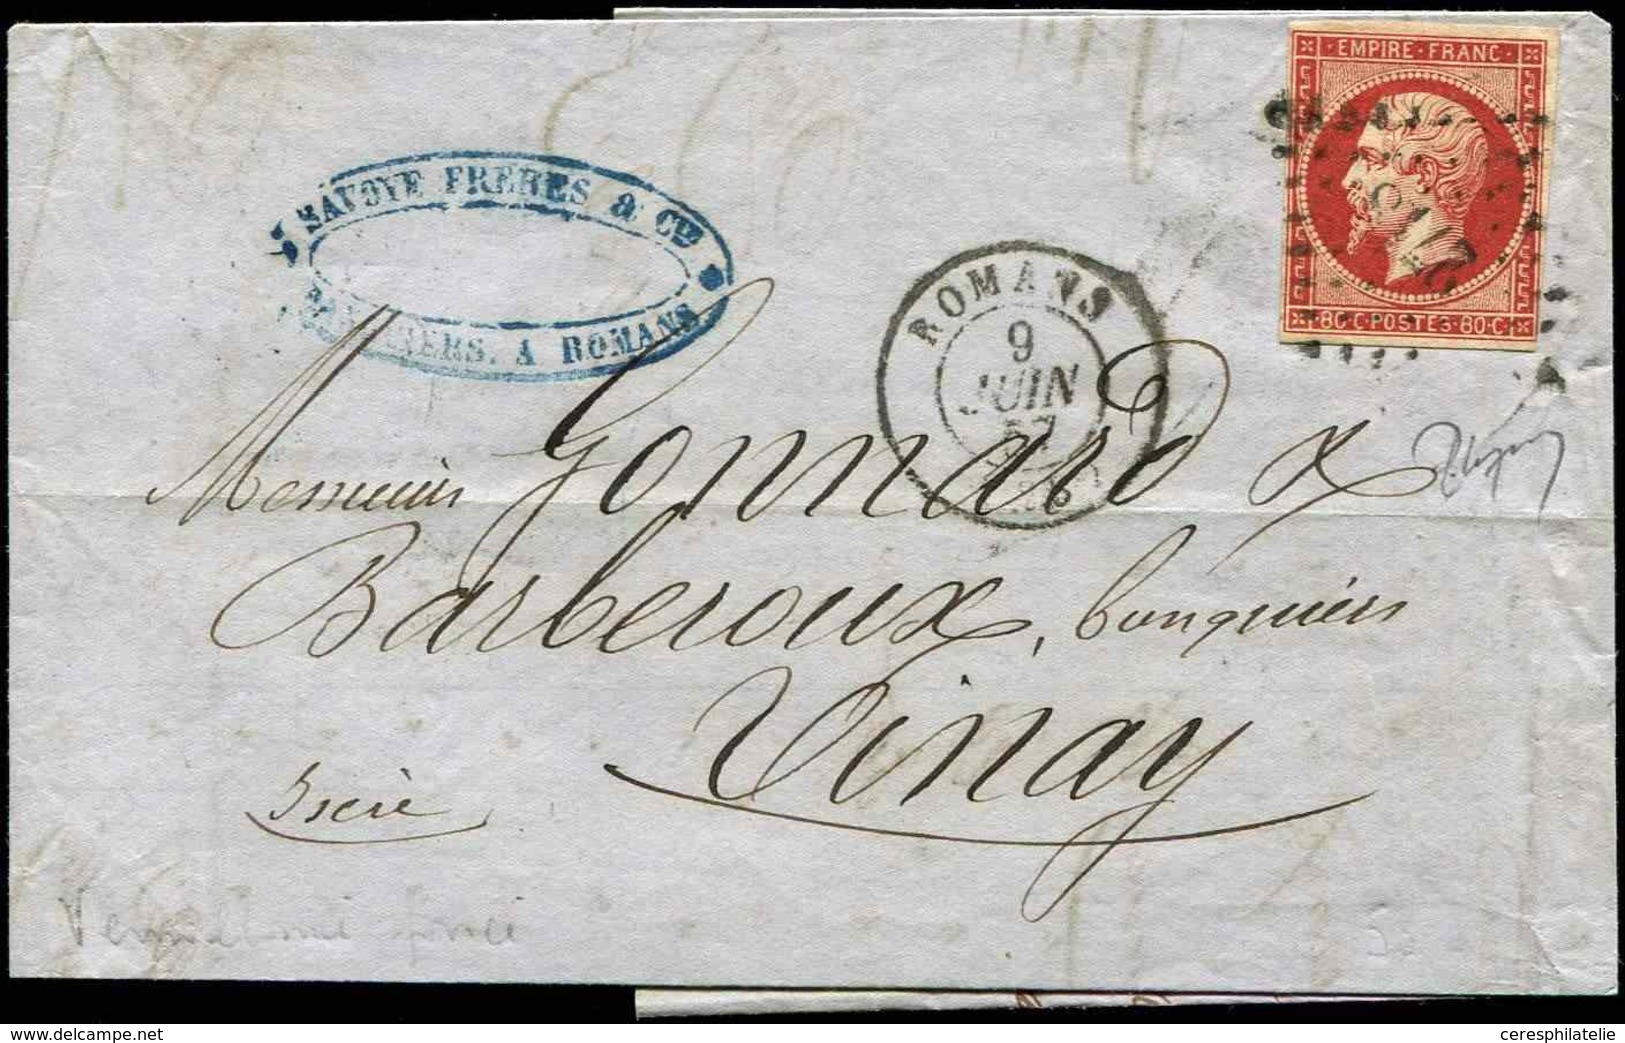 EMPIRE · FRANC
80·C·POSTES·80·C
SAVOYE FRERES & CIE
A ROMANS
ROMANS
9
JUIN
57
Messieurs Gonnard &
Barberoux, banquiers
Vinay
Isère
ceresphilatelie